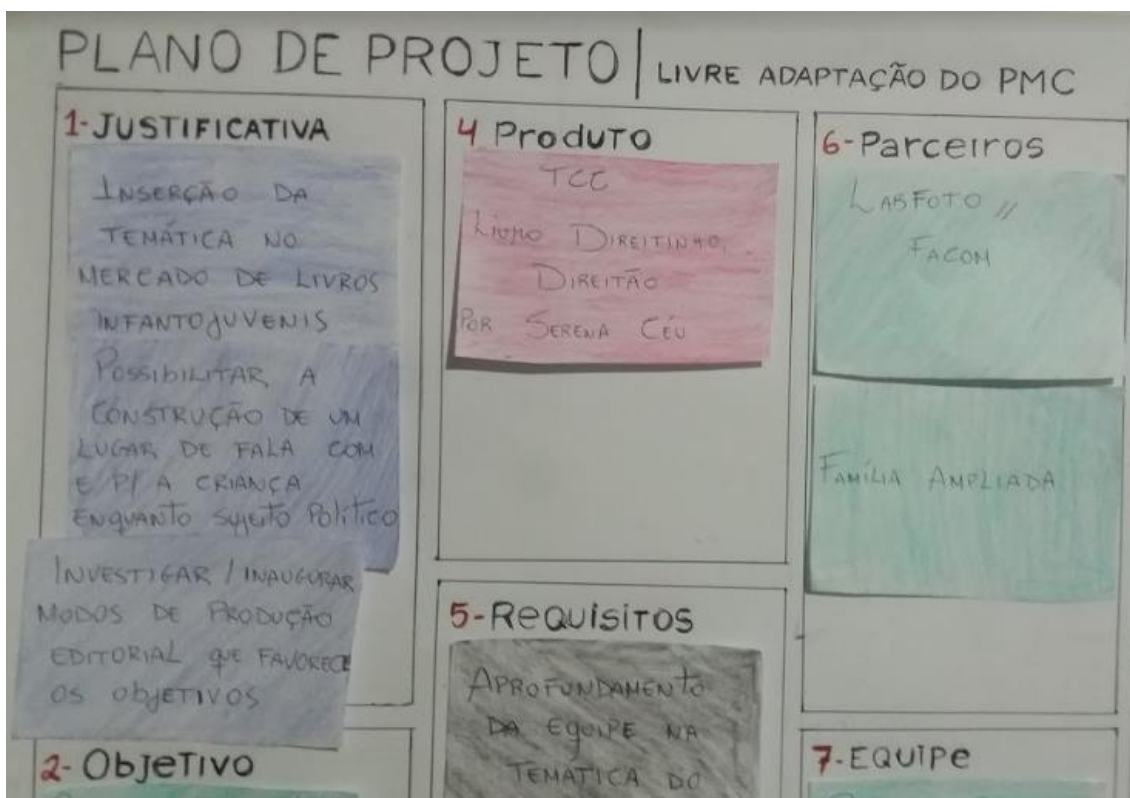 PLANO DE PROJETO | LIVRE ADAPTAÇÃO DO PMC
1-JUSTIFICATIVA
INSERÇÃO DA
TEMÁTICA NO
MERCADO DE LIVROS
INFANTOJUVENIS
POSSIBILITAR A
CONSTRUÇÃO DE UM
LUGAR DE FALA COM
E P/ A CRIANÇA
ENQUANTO SUJEITO POLÍTICO
INVESTIGAR / INAUGURAR
MODOS DE PRODUÇÃO
EDITORIAL QUE FAVORECE
OS OBJETIVOS
2-OBJETIVO
4 PRODUTO
TCC
LIVRO DIREITINHO,
DIREITÃO
POR SERENA CÉU
5-REQUISITOS
APROFUNDAMENTO
DA EQUIPE NA
TEMATICA DO
6-PARCEIROS
LABFOTO //
FACOM
FAMÍLIA AMPLIADA
7-EQUIPE